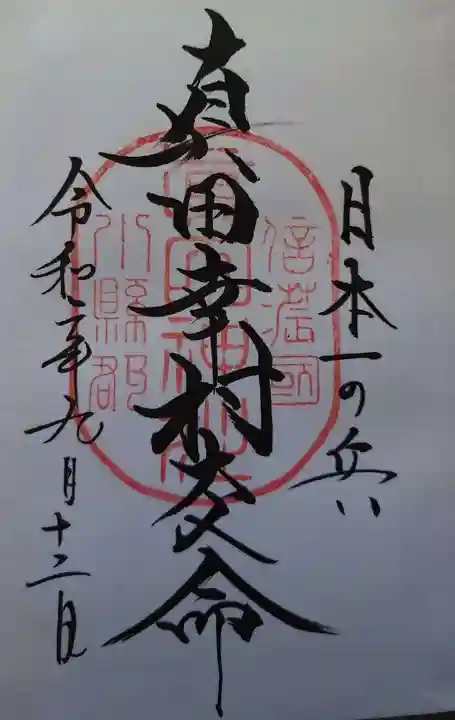 日本一の兵
真田幸村 命
令和 年九月十二日
信濃國
神社
小縣郡